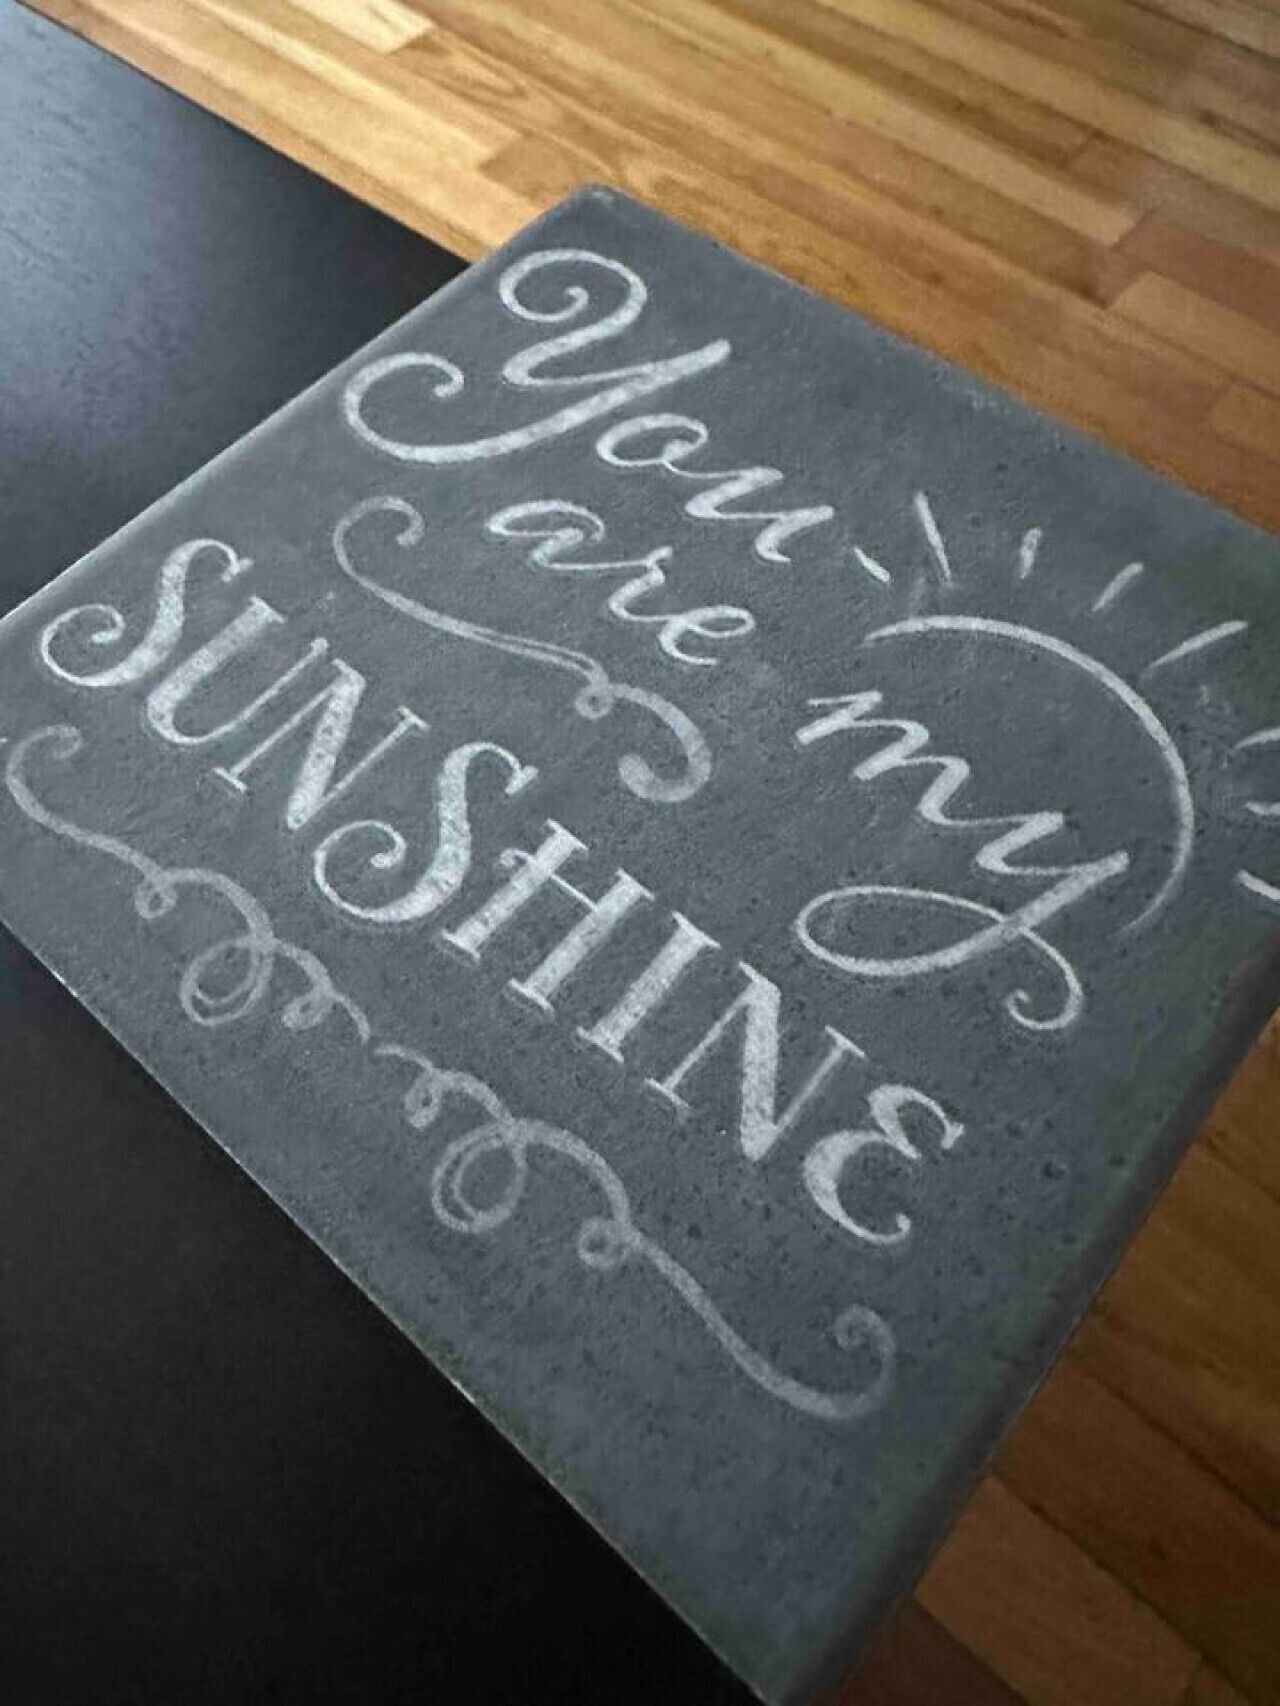 You
are
my
SUNSHINE